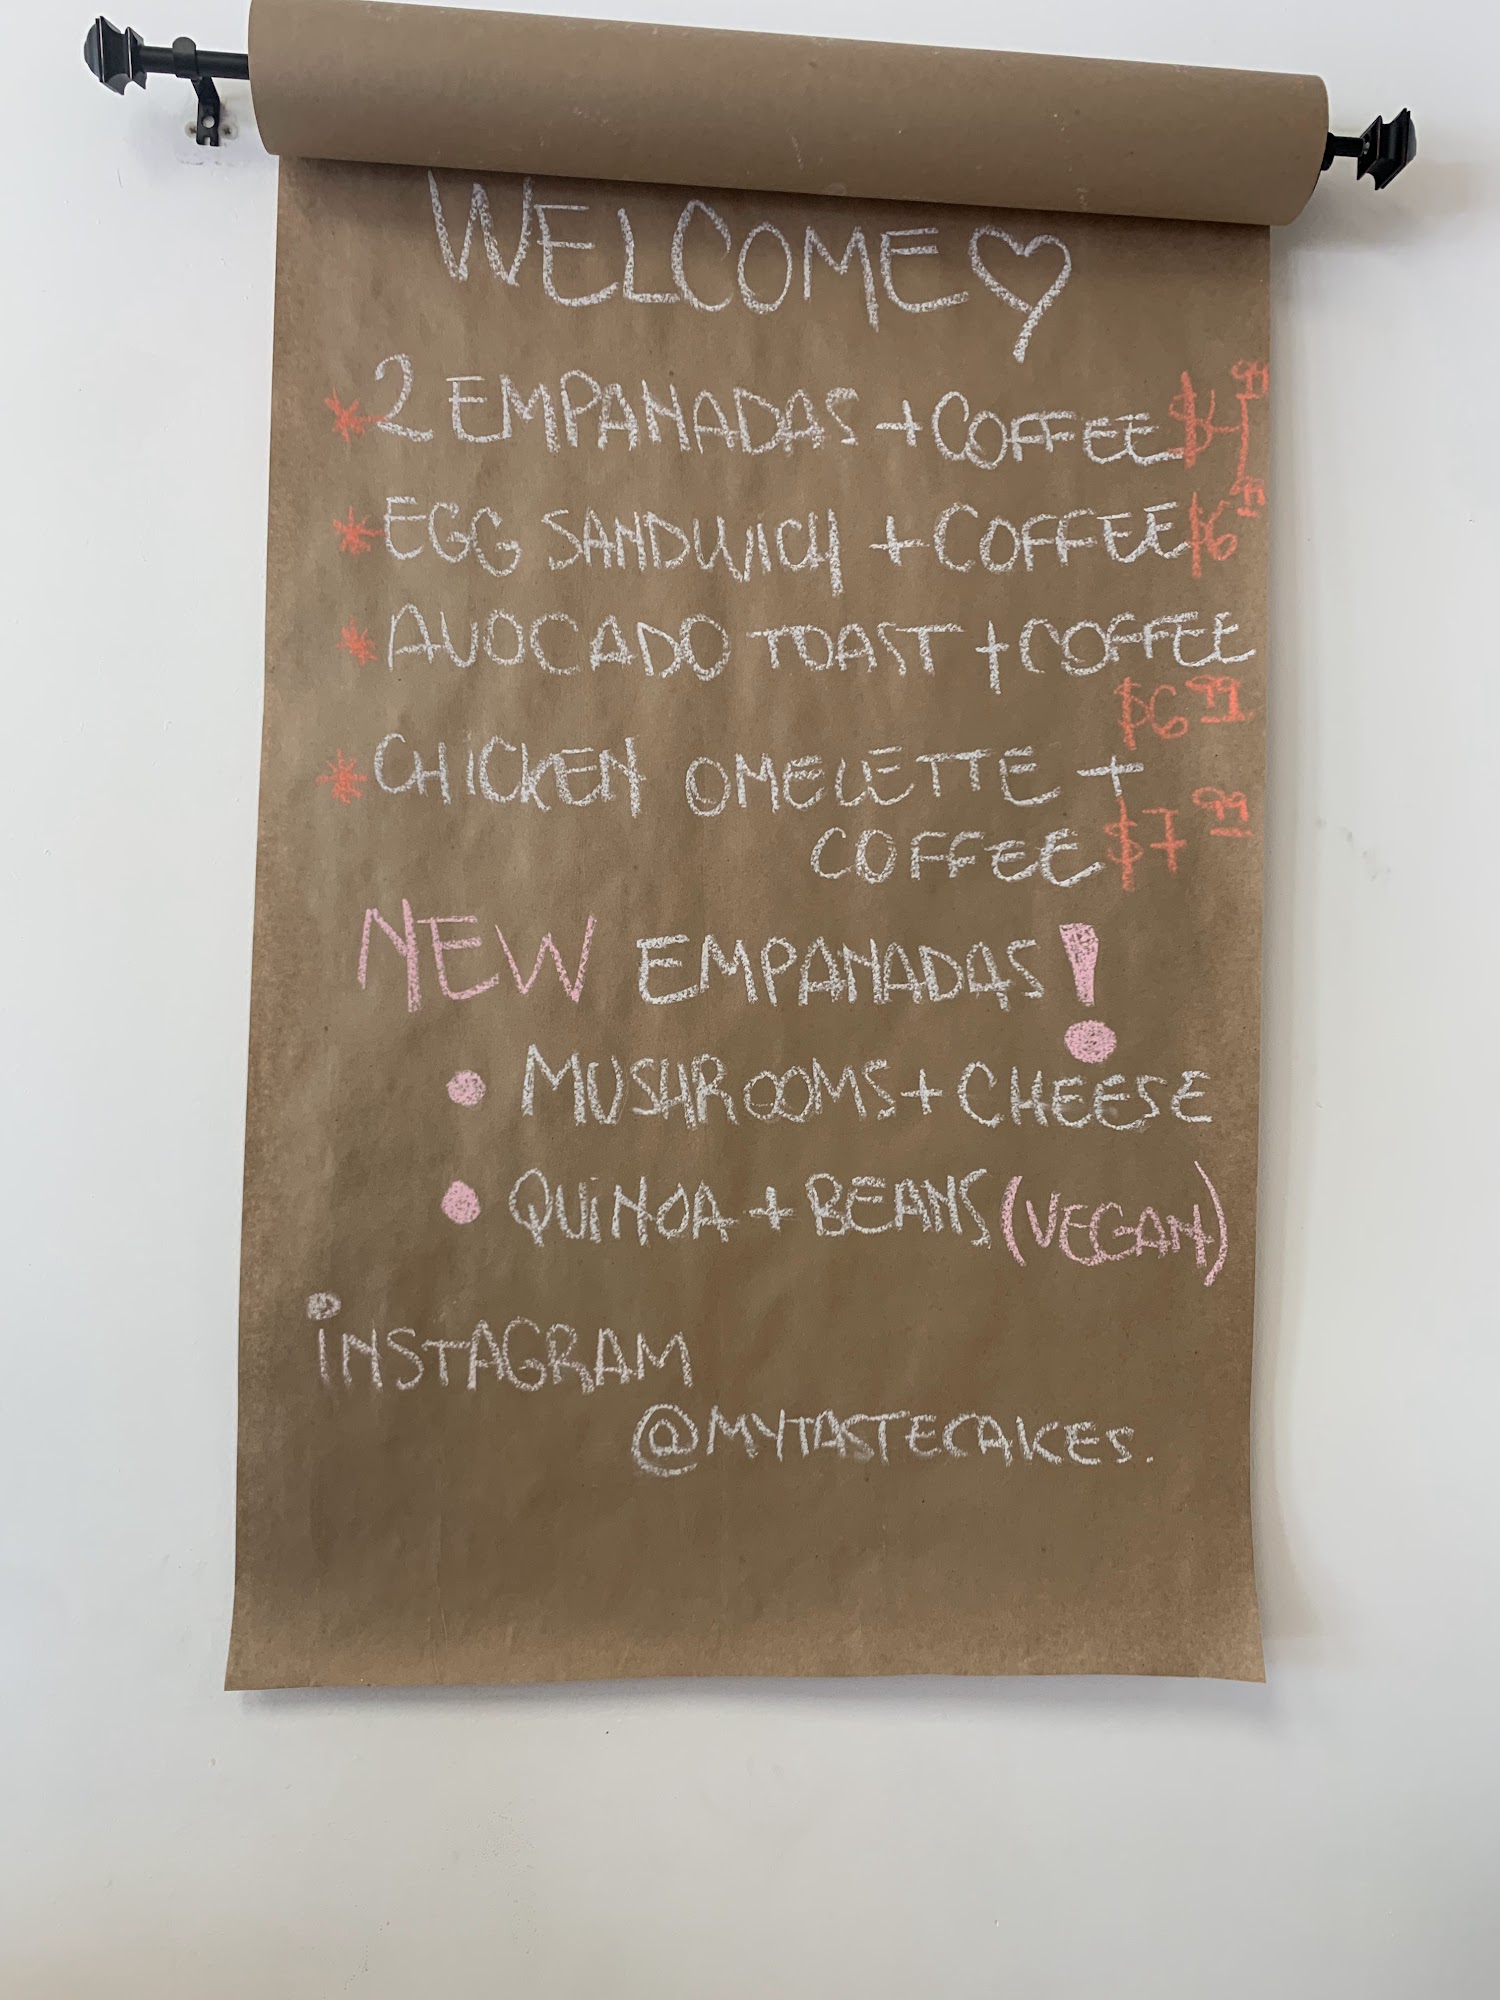 WELCOME
* 2 EMPANADAS + COFFEE $4.99
* EGG SANDWICH + COFFEE $6
* AVOCADO TOAST + COFFEE
$6.99
* CHICKEN OMELETTE +
COFFEE $7.99
NEW EMPANADAS!
• MUSHROOMS + CHEESE
• QUINOA + BEANS (VEGAN)
INSTAGRAM
@MYTASTECAKES.